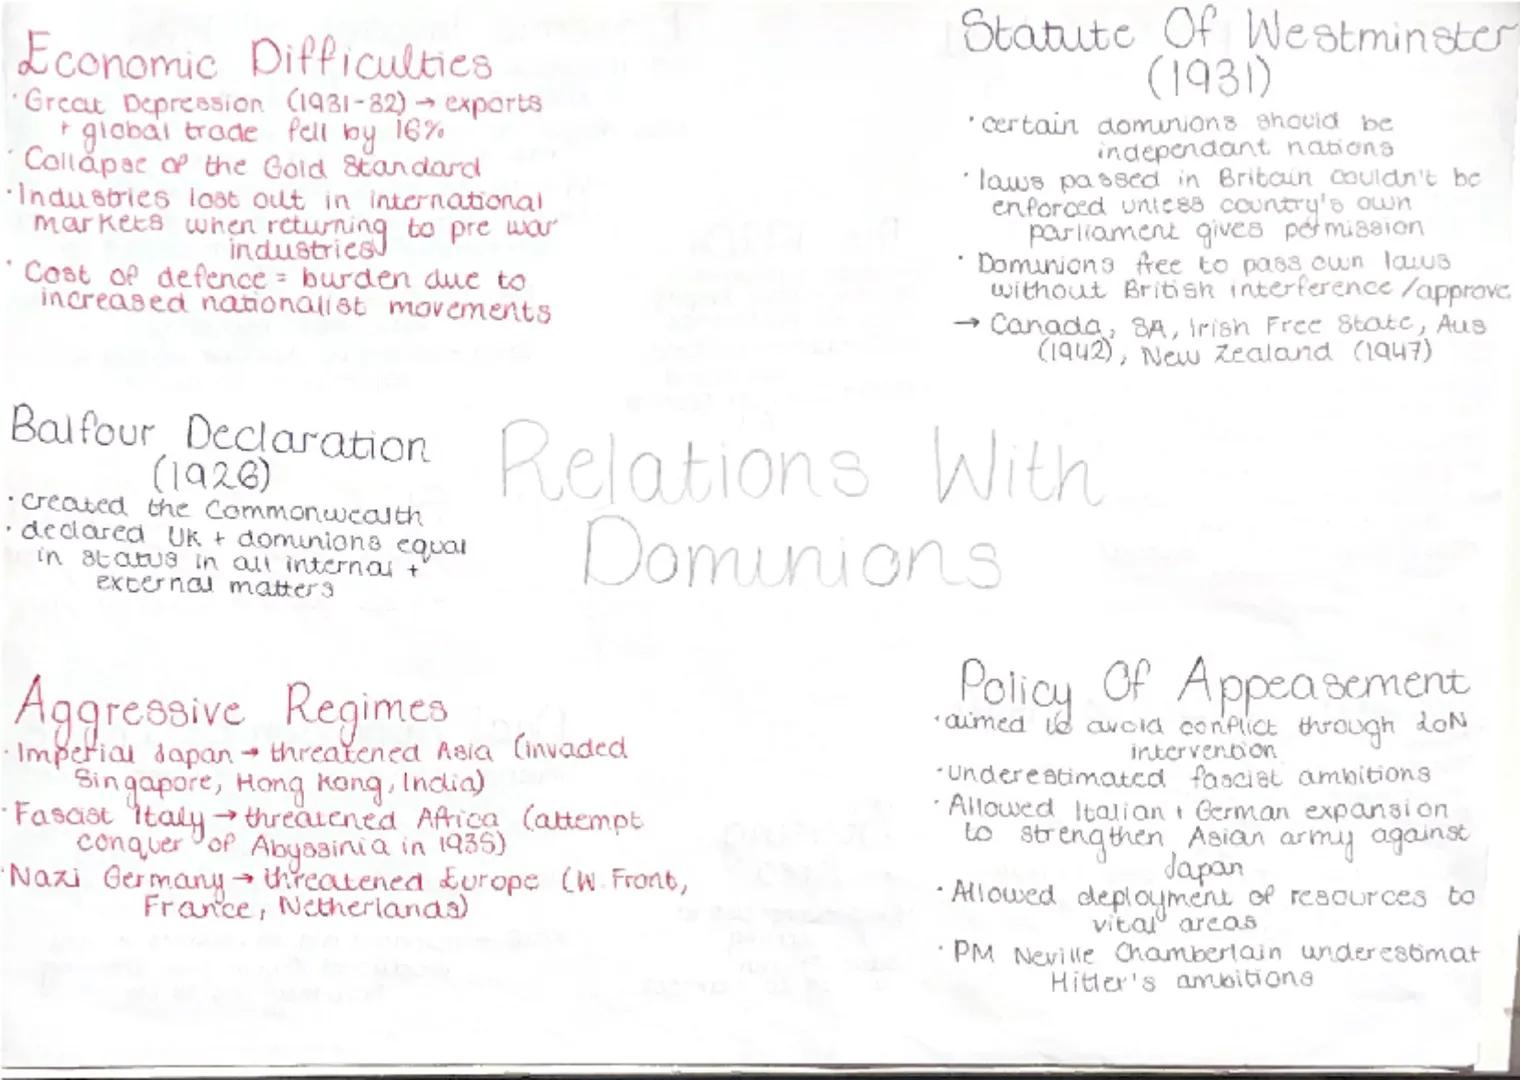 Economic Difficulties
· Great Depression (1931-32) → exports
+ global trade fell by 16%
· Collapse of the Gold Standard
· Industries lost out in international
markets when returning to pre war
industries
· Cost of defence = burden due to
increased nationalist movements
Statute Of Westminster
(1931)
· certain dominions should be
independant nations
· laws passed in Britain couldn't be
enforced unless country's own
parliament gives permission
· Dominions free to pass own laws
without British interference/approve
→ Canada, SA, Irish Free State, Aus
(1942), New Zealand (1947)
Balfour Declaration
(1926)
· created the Commonwealth
· declared UK + dominions equal
in status in all internal +
external matters
Relations With
Dominions
Aggressive Regimes
· Imperial Japan → threatened Asia (invaded
Singapore, Hong Kong, India)
· Fascist Italy → threatened Africa (attempt
conquer of Abyssinia in 1935)
· Nazi Germany → threatened Europe (W. Front,
France, Netherlands)
Policy Of Appeasement
· aimed to avoid conflict through LoN
intervention
· Underestimated fascist ambitions
· Allowed Italian + German expansion
to strengthen Asian army against
Japan
· Allowed deployment of resources to
vital areas
· PM Neville Chamberlain underestimat
Hitler's ambitions